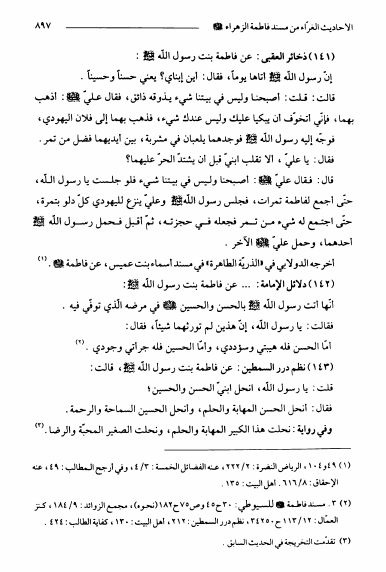 الأحاديث الغرّاء من مسند فاطمة الزهراء ﷺ ٨٩٧
(١٤١) ذخائر العقبى: عن فاطمة بنت رسول اللّه ﷺ :
إنّ رسول اللّه ﷺ أتاها يوماً، فقال: أين إبناي؟ يعني حسناً وحسيناً.
قالت: قلت: أصبحنا وليس في بيتنا شيء يذوقه ذائق، فقال عليّ : أذهب
بهما، فإنّي أتخوّف أن يبكيا عليك وليس عندك شيء، فذهب بهما إلى فلان اليهودي،
فوجّه إليه رسول اللّه ﷺ فوجدهما يلعبان في مشربة، بين أيديهما فضل من تمر.
فقال: يا عليّ، ألا تقلب ابنيّ قبل أن يشتدّ الحرّ عليهما؟
قال: فقال عليّ : أصبحنا وليس في بيتنا شيء فلو جلست يا رسول اللّه،
حتّى أجمع لفاطمة تمرات، فجلس رسول اللّه ﷺ وعليّ ينزع لليهودي كلّ دلو بتمرة،
حتّى اجتمع له شيء من تمر فجعله في حجزته، ثمّ أقبل فحمل رسول اللّه ﷺ
أحدهما، وحمل عليّ الآخر.
أخرجه الدولابي في «الذريّة الطاهرة» في مسند أسماء بنت عميس، عن فاطمة . (١)
(١٤٢) دلائل الإمامة: ... عن فاطمة بنت رسول اللّه ﷺ :
أنّها أتت رسول اللّه ﷺ بالحسن والحسين في مرضه الّذي توفّي فيه.
فقالت: يا رسول اللّه، إنّ هذين لم تورثهما شيئاً، فقال:
أمّا الحسن فله هيبتي وسؤددي، وأمّا الحسين فله جرأتي وجودي. (٢)
(١٤٣) نظم درر السمطين: عن فاطمة بنت رسول اللّه ﷺ، قالت:
قلت: يا رسول اللّه، انحل ابنيّ الحسن والحسين؛
فقال: أنحل الحسن المهابة والحلم، وأنحل الحسين السماحة والرحمة.
وفي رواية: نحلت هذا الكبير المهابة والحلم، ونحلت الصغير المحبّة والرضا. (٣)
(١) ٤٩ و١٠٤، الرياض النضرة: ٢٢٢/٢، عنه الفضائل الخمسة: ٤/٣، وفي أرجح المطالب: ٤٩، عنه
الإحقاق: ٦١٦/٨. أهل البيت: ١٣٥.
(٢) ٣. مسند فاطمة للسيوطي: ٣٠ ح٤٥ وص٧٥ ح١٨٢ (نحوه)، مجمع الزوائد: ١٨٤/٩، كنز
العمّال: ١١٣/١٢ ح٣٤٢٥٠، نظم درر السمطين: ٢١٢، أهل البيت: ١٣٠، كفاية الطالب: ٤٢٤.
(٣) تقدّمت التخريجة في الحديث السابق.